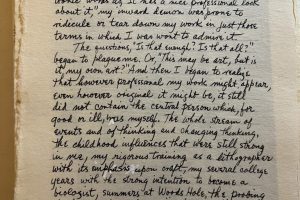 about it," my reward demon was prone to
ridicule or tear down my work in just those
terms in which I was wont to admire it.
The questions, "Is that enough? Is that all?"
began to plague me. Or, "This may be art, but is
it my own art?" And then I began to realize
that however professional my work might appear,
even however original it might be, it still
did not contain the central person which, for
good or ill, was myself. The whole stream of
events and of thinking and changing thinking,
the childhood influences that were still strong
in me, my rigorous training as a lithographer
with its emphasis upon craft, my several college
years with the strong intention to become a
biologist, summers at Woods Hole, the probing